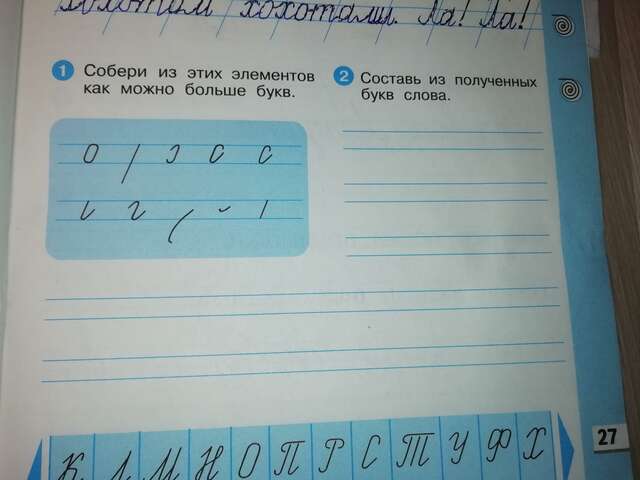 хохотал хохотали. Ла! Ла!
1 Собери из этих элементов
как можно больше букв.
2 Составь из полученных
букв слова.
К Л М Н О П Р С Т У Ф Х
27